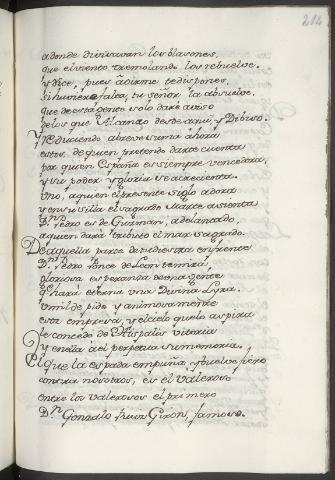 214
adonde divisavan los blasones,
que el viento tremolando los rebuelve.
y dice, pues a oirme te dispones,
si huviere falta, tu señor la absuelve.
que de esta gente solo daré aviso
de los que alcanzo desde aqui, y diviso.
Y reduciendo a breve suma ahora
estos, de quien pretendo darte cuenta
por quien España es siempre vencedora,
y su poder y gloria se acrecienta.
Uno, a quien el presente siglo adora
y en su silla el sagrado Marte asienta
Dn. Pedro es de Guzman, adelantado,
a quien dará tributo el mar sagrado.
De aquella parte de tu diestra enfrente
Dn. Pedro Ponce de Leon vernirá,
gloriosa esperanza de su gente
q hará eterna una Divina Lyra.
Umilde pide y animosamente
esta empresa, y el cielo que lo aspira
le concede de Hispalis vitoria
y en ella a el perpetua su memoria.
El que la espada empuña y buelve fiero
contra nosotros, es el valeroso
entre los valerosos el primero
Dn. Gonzalo Giron, famoso.